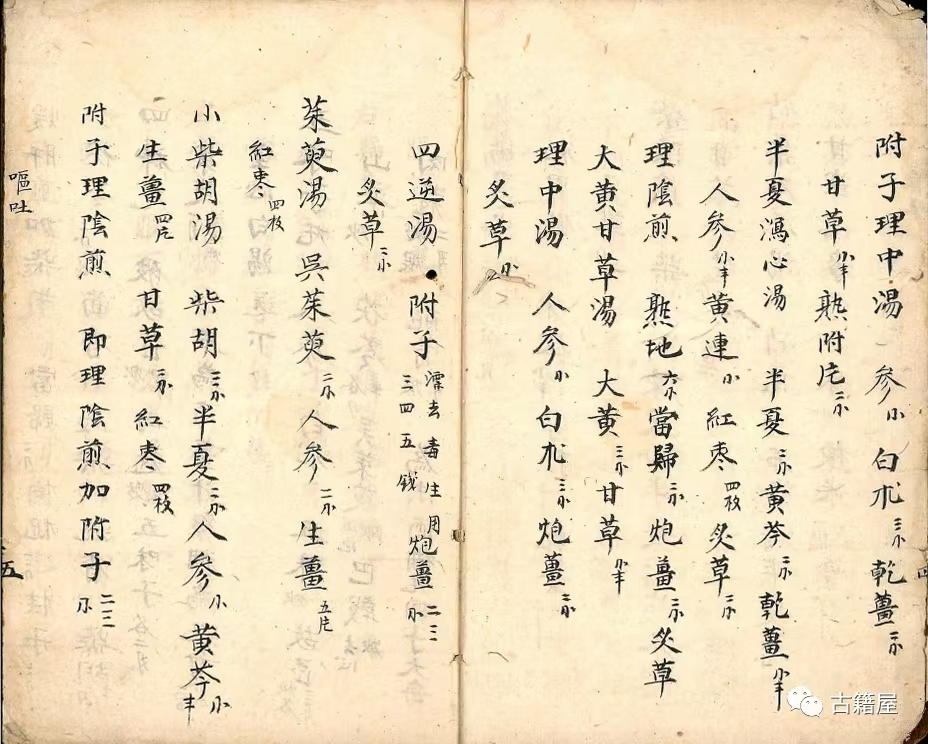 附子理中湯 參 白朮 三 乾薑 二
甘草 半 熟附片 二
半夏瀉心湯 半夏 三 黄芩 二 乾薑 半
人參 半 黄連 紅棗 四枚 炙草 二
理陰煎 熟地 六 當歸 二 炮薑 二 炙草
大黄甘草湯 大黄 三 甘草 半
理中湯 人參 白朮 三 炮薑 二
炙草
四逆湯 附子 漂去毒生用三四五錢 炮薑 二三
炙草 二
茱萸湯 吳茱萸 二 人參 二 生薑 五片
紅棗 四枚
小柴胡湯 柴胡 三 半夏 二 人參 黄芩 半
生薑 四片 甘草 二 紅棗 四枚
附子理陰煎即理陰煎加附子 二三
嘔吐
五
四
古籍屋